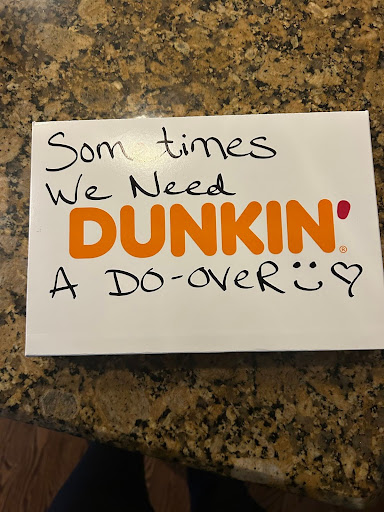 Som times
We Need
DUNKIN'®
A DO-OVER